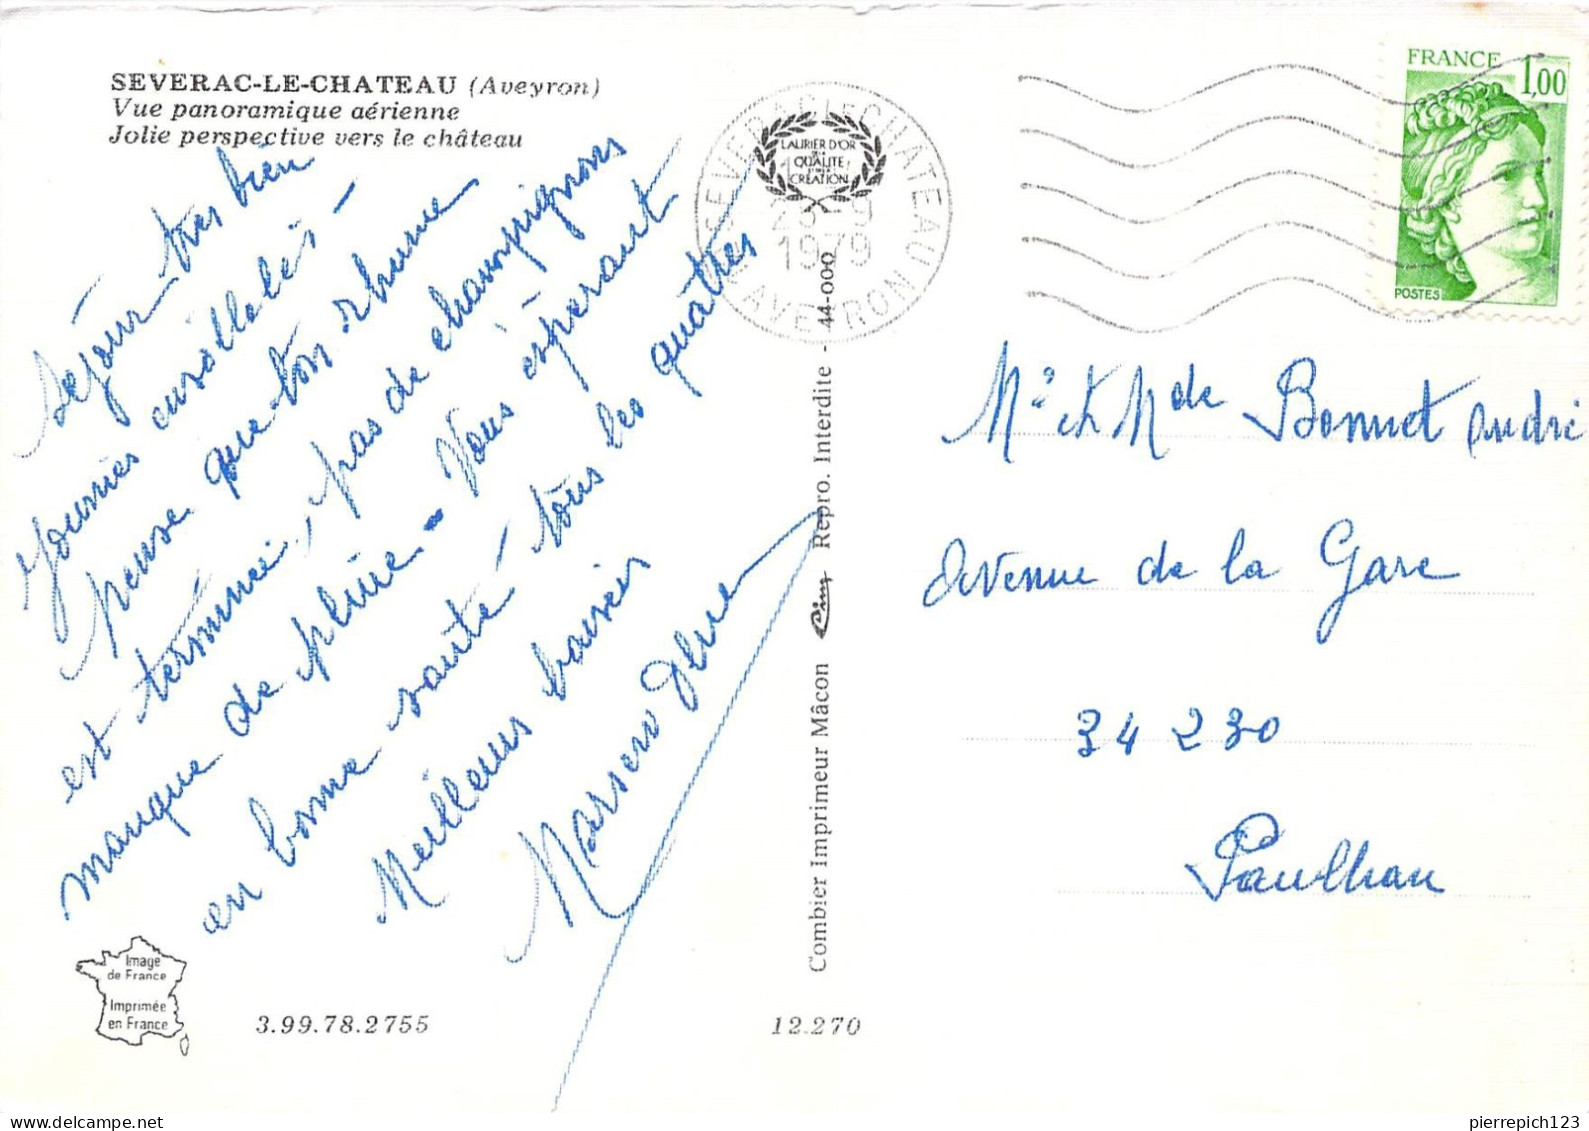 SEVERAC-LE-CHATEAU (Aveyron)
Vue panoramique aérienne
Jolie perspective vers le château
Séjour très bien
journées ensoleillées -
pense que ton rhume
est terminé, pas de champignons
manque de pluie - Vous espérant
en bonne santé - tous les quatres
Meilleurs baisers
Image
de France
Imprimée
en France
3.99.78.2755
12.270
Combier Imprimeur Mâcon
Cim
Repro. Interdite - 44-000
SEVERAC LE CHATEAU
AVEYRON
1979
LAURIER D'OR
DE LA
QUALITÉ
CRÉATION
FRANCE
1,00
POSTES
Mr et Mde Bonnet André
Avenue de la Gare
34 230
Paulhan
pierrepich123